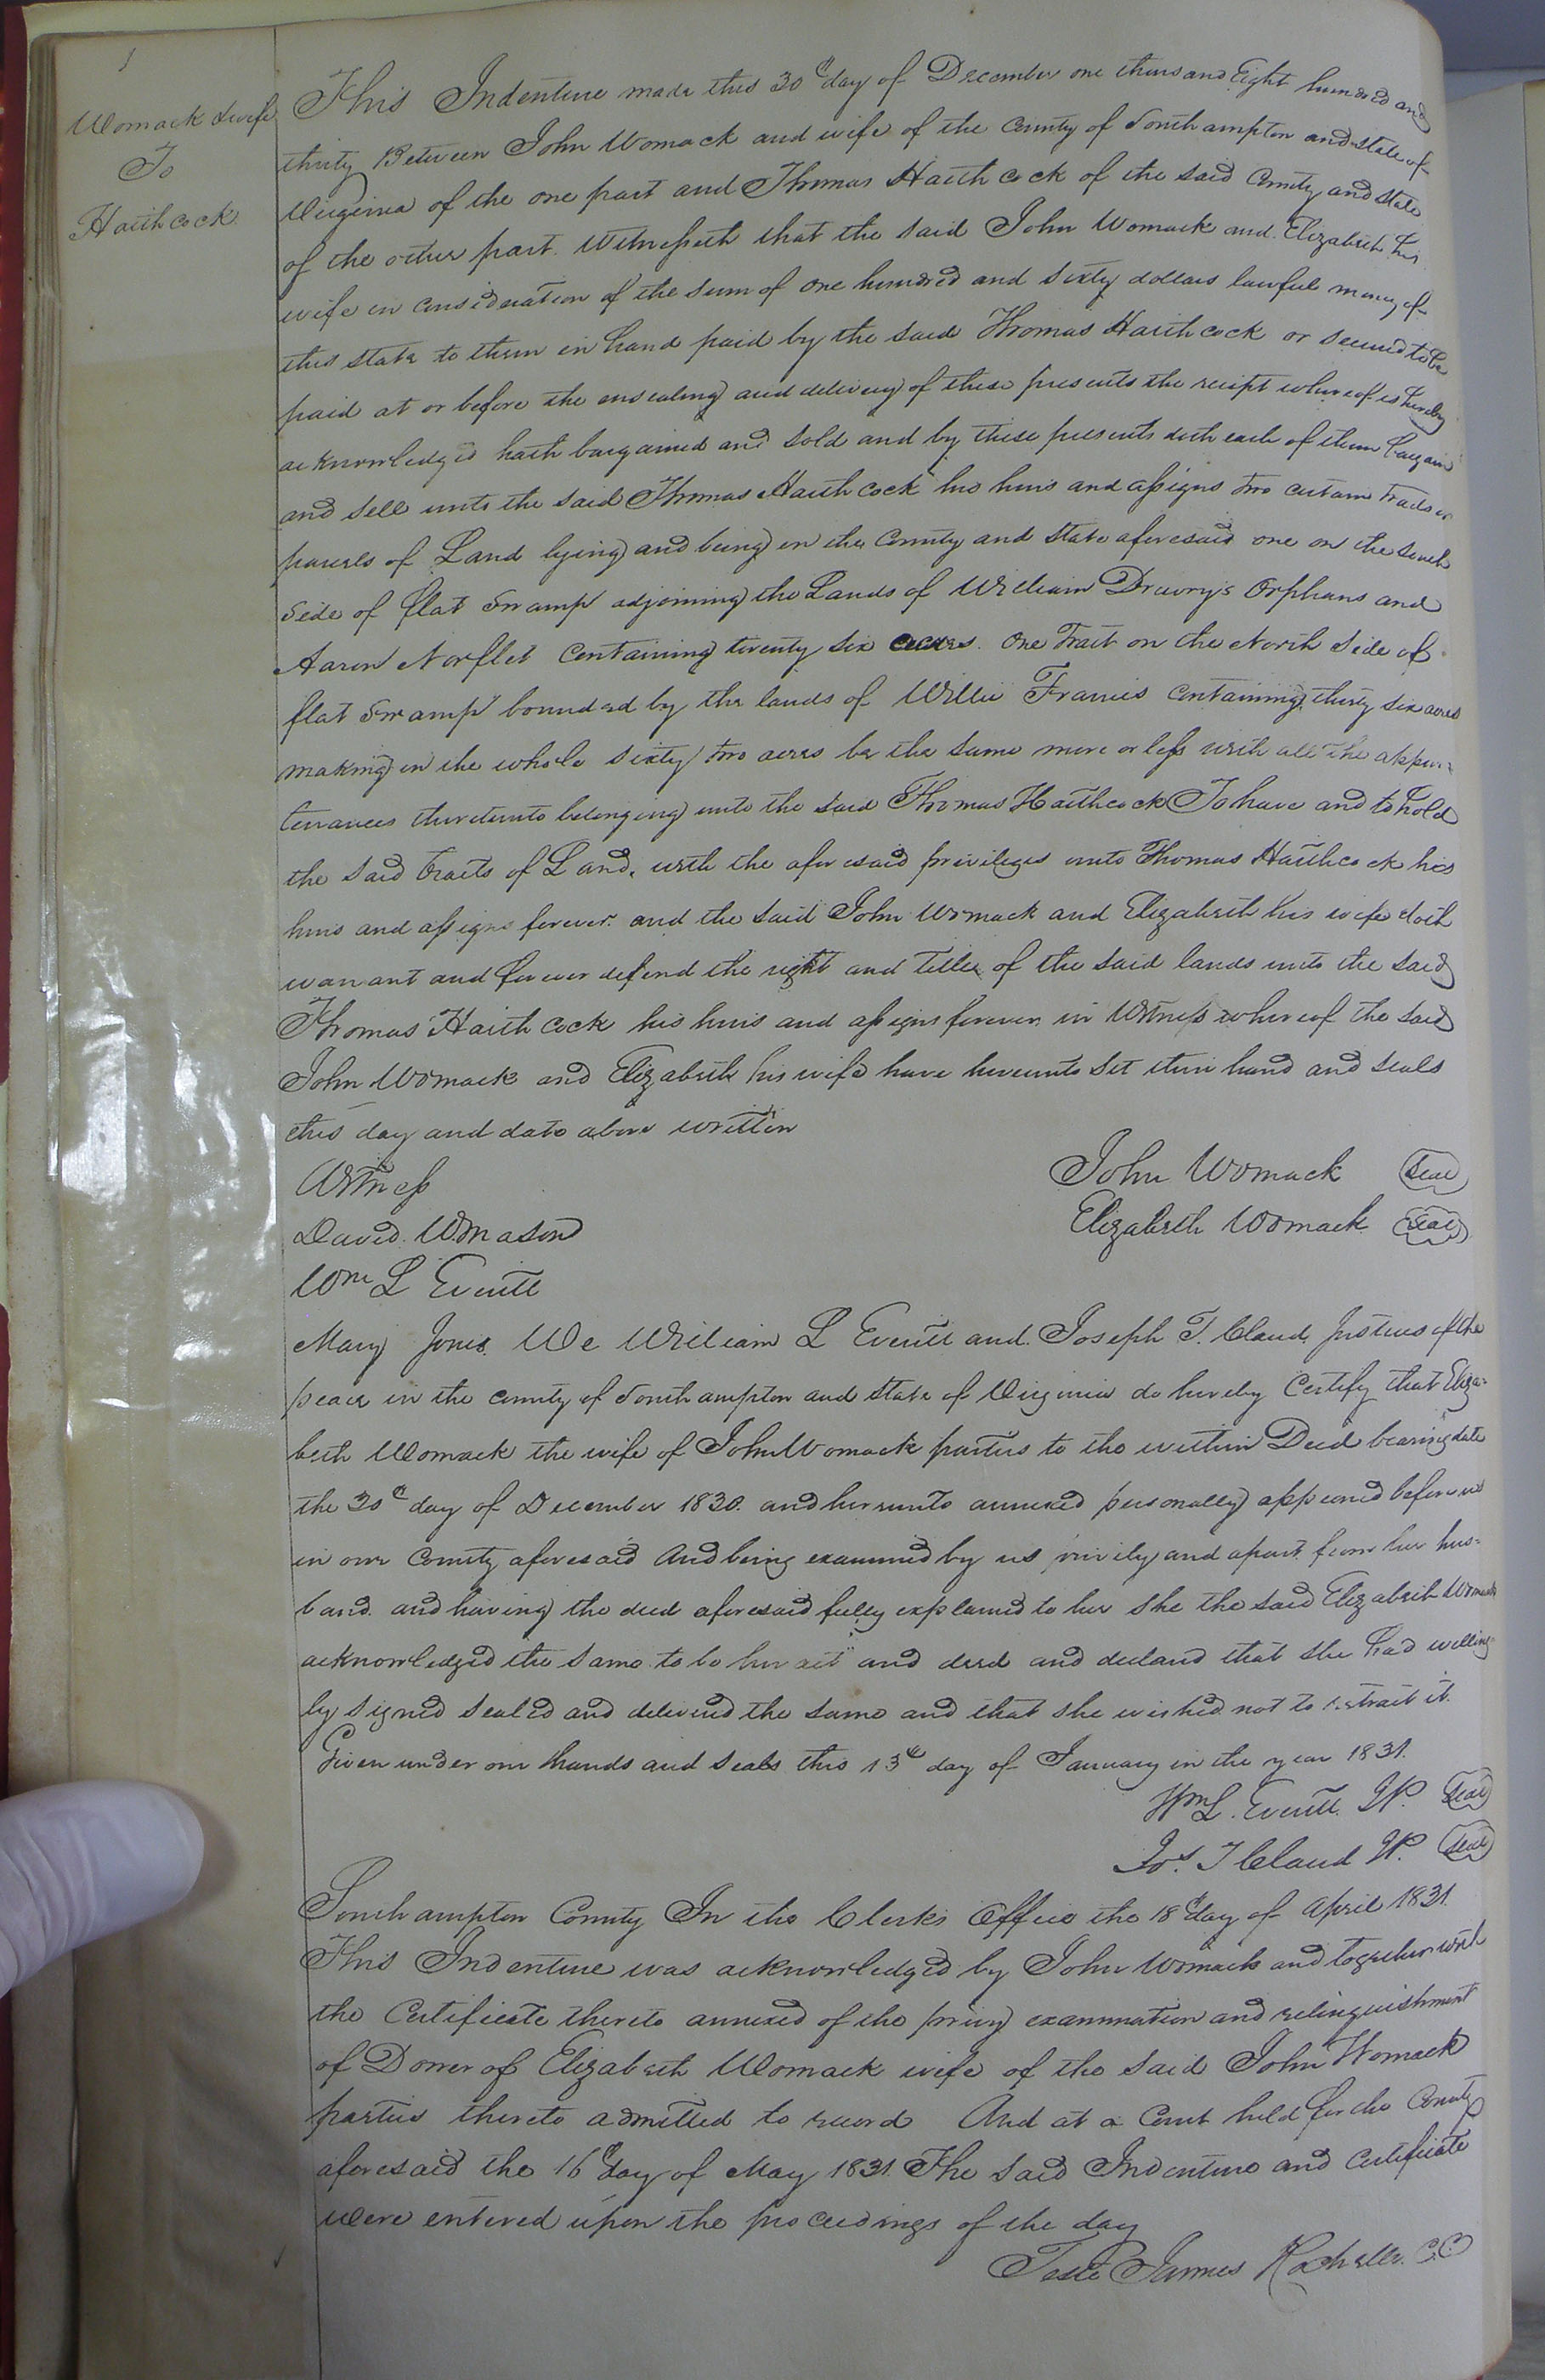 1
Womack & wife
To
Haithcock
This Indenture made this 30th day of December one thousand Eight hundred and
thirty Between John Womack and wife of the County of Southampton and state of
Virginia of the one part and Thomas Haithcock of the said County and state
of the other part. Witnesseth that the said John Womack and Elizabeth his
wife in consideration of the sum of one hundred and sixty dollars lawful money of
this state to them in hand paid by the said Thomas Haithcock or secured to be
paid at or before the ensealing and delivery of these presents the receipt whereof is hereby
acknowledged hath bargained and sold and by these presents doth each of them bargain
and sell unto the said Thomas Haithcock his heirs and assigns two certain tracts or
parcels of Land lying and being in the County and state aforesaid one on the South
side of flat Swamp adjoining the Lands of William Drewry's Orphans and
Aaron Norflet containing twenty six acres. One Tract on the North side of
flat Swamp bounded by the lands of Willie Francis containing thirty six acres
making in the whole sixty two acres be the same more or less with all the appur-
tenances thereunto belonging unto the said Thomas Haithcock To have and to hold
the said tracts of Land, with the aforesaid privileges unto Thomas Haithcock his
heirs and assigns forever. and the said John Womack and Elizabeth his wife doth
warrant and forever defend the right and title of the said lands unto the said
Thomas Haithcock his heirs and assigns forever in Witness whereof the said
John Womack and Elizabeth his wife have hereunto set their hand and seals
this day and date above written
Witness
John Womack Seal
David Womason
Elizabeth Womack Seal
Wm L Everitt
Mary Jones. We William L Everitt and Joseph T. Claud Justices of the
peace in the county of Southampton and state of Virginia do hereby Certify that Eliza-
beth Womack the wife of John Womack parties to the within Deed bearing date
the 30th day of December 1830. and hereunto annexed personally appeared before us
in our County aforesaid And being examined by us privily and apart from her hus-
band. and having the deed aforesaid fully explained to her she the said Elizabeth Womack
acknowledged the same to be her act and deed and declared that she had willing-
ly signed sealed and delivered the same and that she wished not to retract it.
Given under our hands and seals this 13th day of January in the year 1831.
Wm L. Everitt JP. Seal
Jos. T Claud JP. Seal
Southampton County In the Clerks Office the 18th day of April 1831.
This Indenture was acknowledged by John Womack and together with
the Certificate thereto annexed of the privy examination and relinquishment
of Dower of Elizabeth Womack wife of the said John Womack
parties thereto admitted to record And at a Court held for the County
aforesaid the 16th day of May 1831. The said Indenture and Certificate
were entered upon the proceedings of the day
Teste James Rochelle. C.C